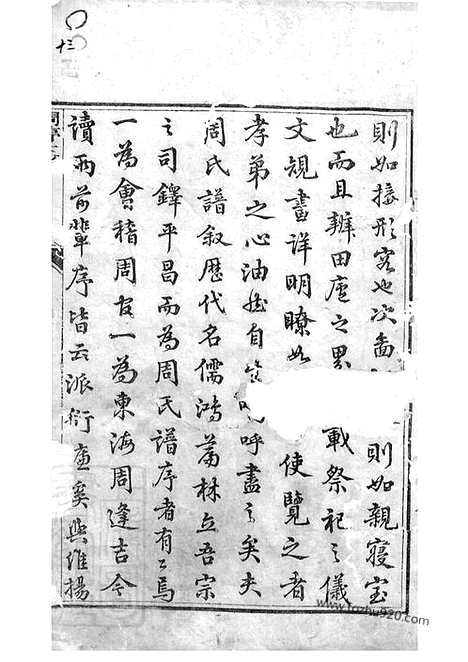 則如接形容也次面則如親寢室
也而且辦田廬之界載祭祀之儀
文規畫詳明瞭如使覽之者
孝弟之心油然自呼盡之矣夫
周氏譜叙歷代名儒鴻篇林立吾宗
之司鐸平昌而為周氏譜序者有二焉
一為會稽周友一為東海周逢吉今
讀兩前輩序皆云派衍盧奚與維揚
十三
www.fozhu920.com